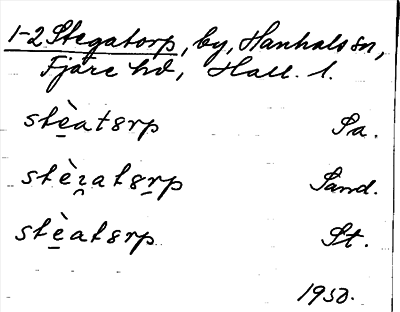 1-2 Stegatorp, by, Hanhals sn,
Fjäre hd, Hall. l.
stè̱at8rp Sa.
stèɿ̯at8ṟp Sand.
stè̱at8rp St.